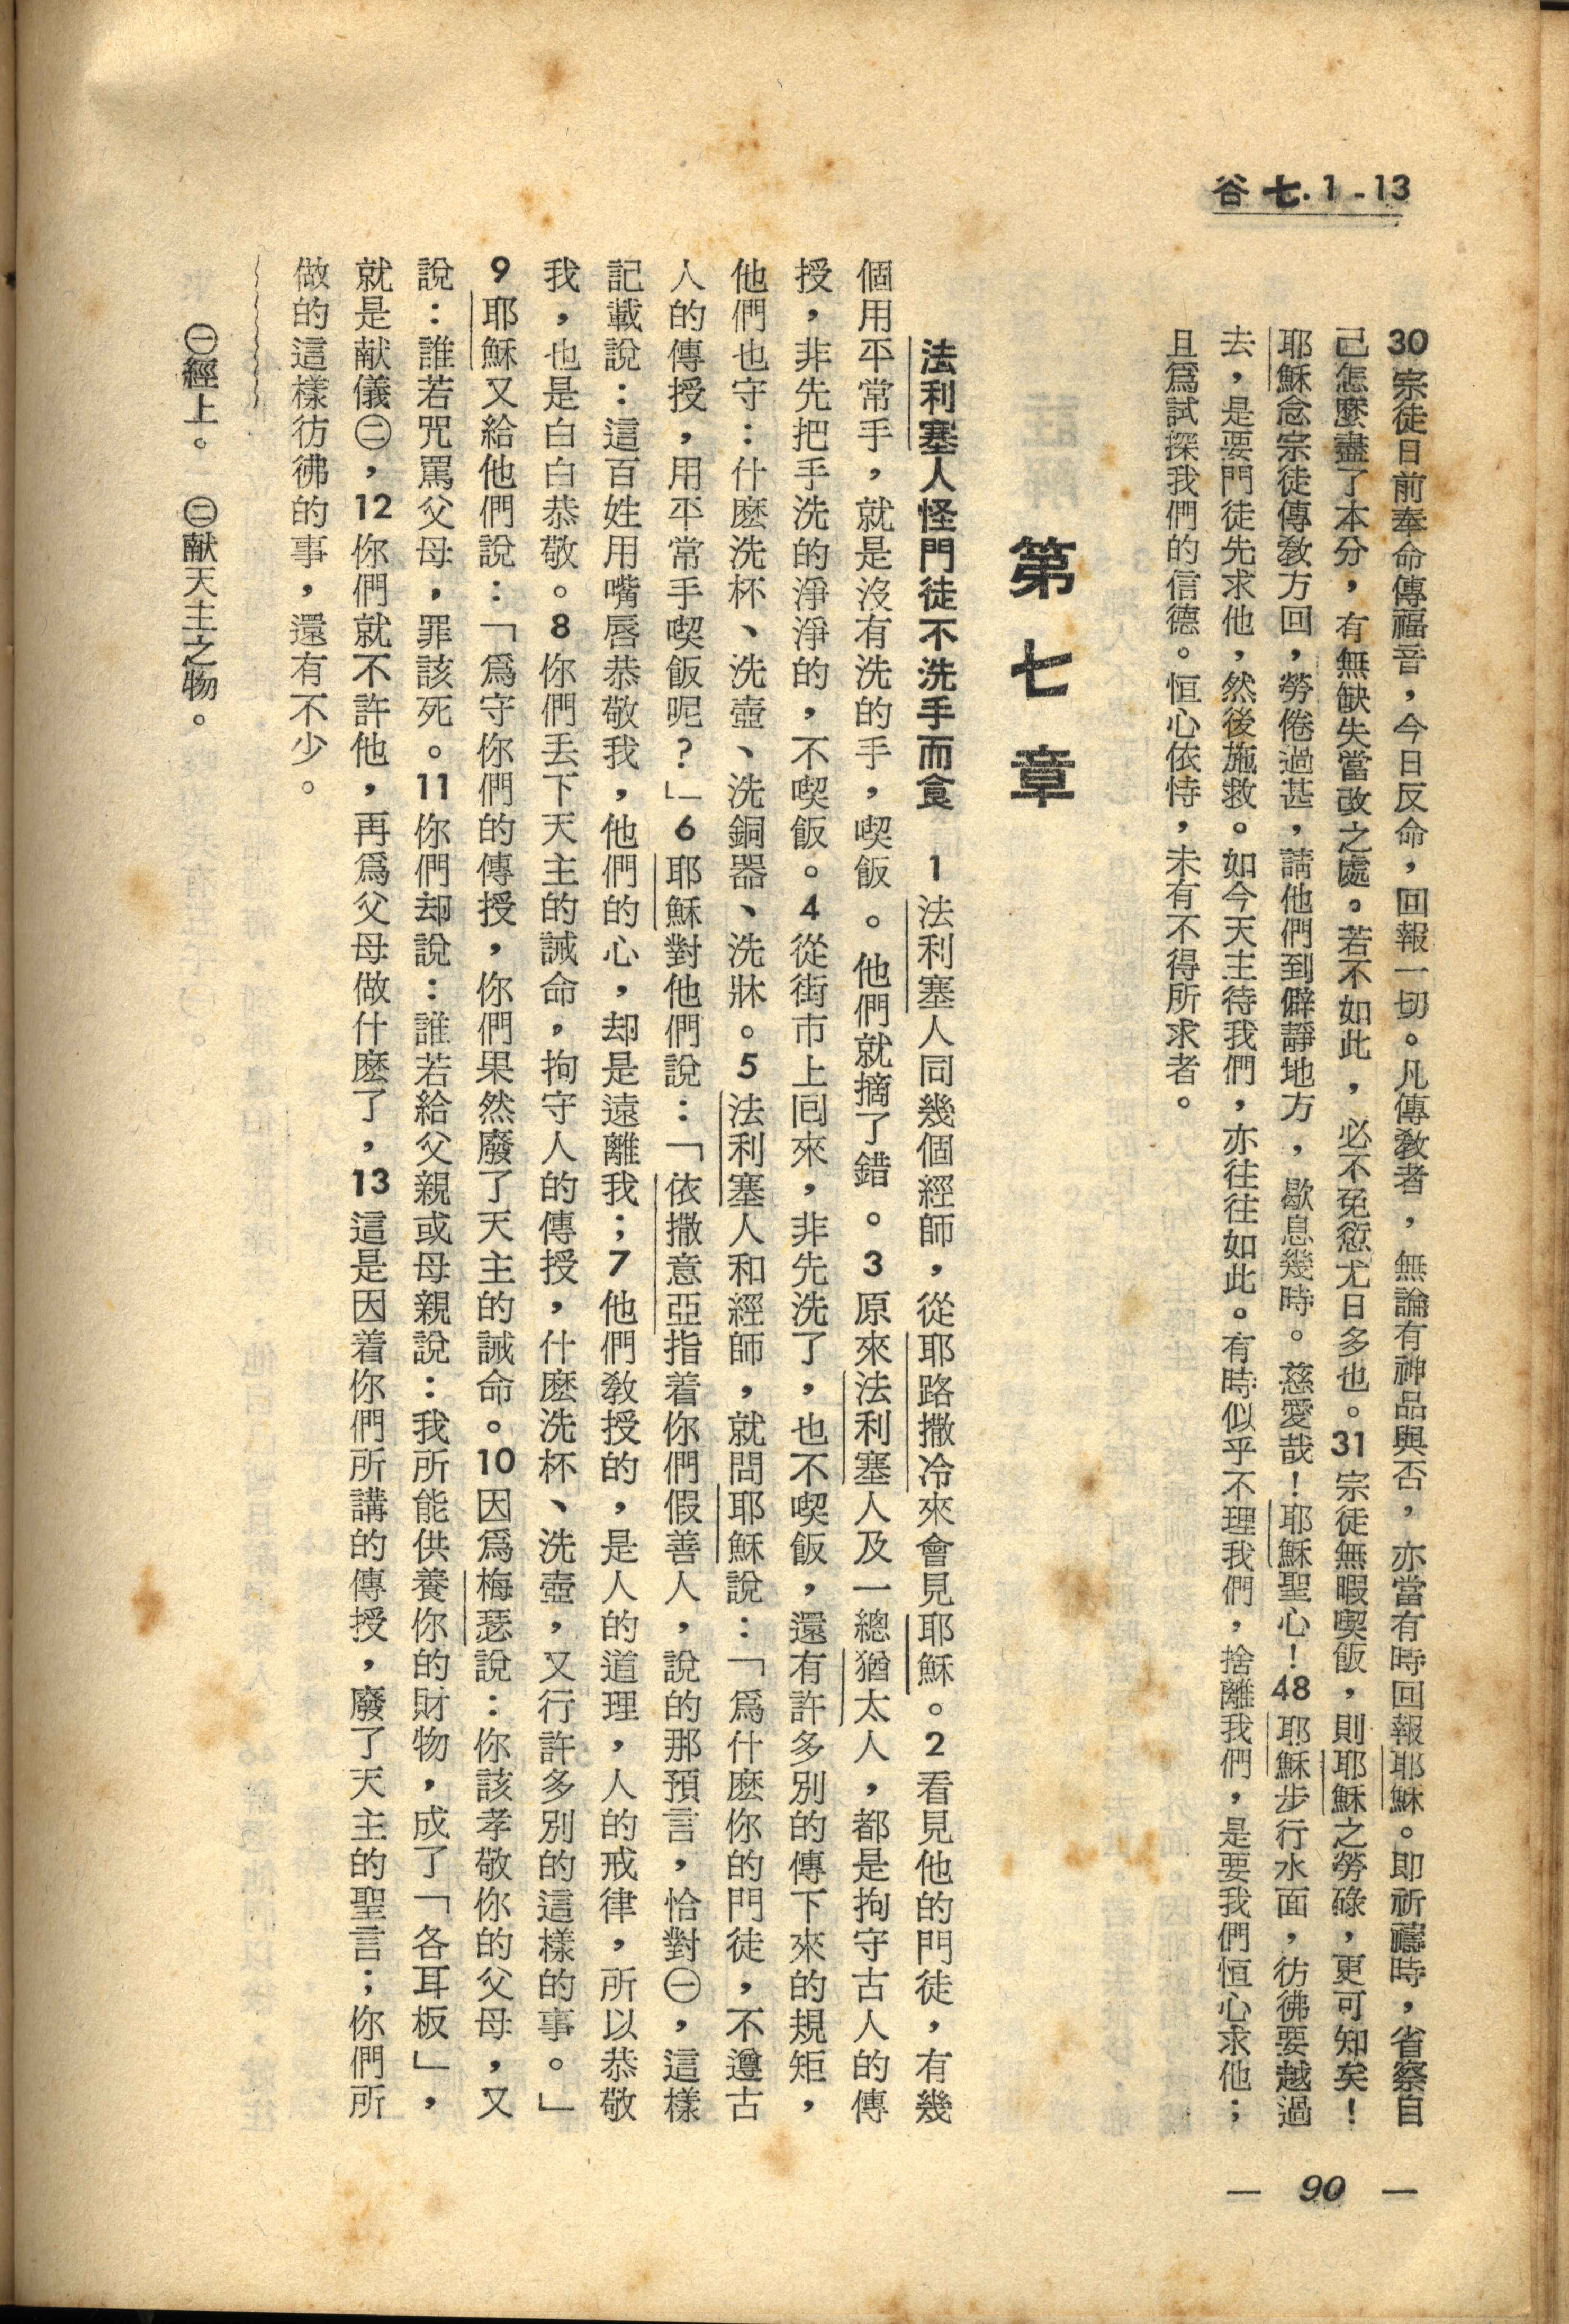 谷七. 1 - 13
30 宗徒日前奉命傳福音，今日反命，回報一切。凡傳敎者，無論有神品與否，亦當有時回報耶穌。卽祈禱時，省察自
己怎麼盡了本分，有無缺失當改之處。若不如此，必不免愆尤日多也。31 宗徒無暇喫飯，則耶穌之勞碌，更可知矣！
耶穌念宗徒傳敎方回，勞倦過甚，請他們到僻靜地方，歇息幾時。慈愛哉！耶穌聖心！48 耶穌步行水面，彷彿要越過
去，是要門徒先求他，然後施救。如今天主待我們，亦往往如此。有時似乎不理我們，捨離我們，是要我們恒心求他；
且爲試探我們的信德。恒心依恃，未有不得所求者。
第七章
法利塞人怪門徒不洗手而食　1 法利塞人同幾個經師，從耶路撒冷來會見耶穌。2 看見他的門徒，有幾
個用平常手，就是沒有洗的手，喫飯。他們就摘了錯。3 原來法利塞人及一總猶太人，都是拘守古人的傳
授，非先把手洗的淨淨的，不喫飯。4 從街市上囘來，非先洗了，也不喫飯，還有許多別的傳下來的規矩，
他們也守：什麽洗杯、洗壺、洗銅器、洗牀。5 法利塞人和經師，就問耶穌說：「爲什麽你的門徒，不遵古
人的傳授，用平常手喫飯呢？」6 耶穌對他們說：「依撒意亞指着你們假善人，說的那預言，恰對㊀，這樣
記載說：這百姓用嘴唇恭敬我，他們的心，却是遠離我；7 他們敎授的，是人的道理，人的戒律，所以恭敬
我，也是白白恭敬。8 你們丟下天主的誡命，拘守人的傳授，什麽洗杯、洗壺，又行許多別的這樣的事。」
9 耶穌又給他們說：「爲守你們的傳授，你們果然廢了天主的誡命。10 因爲梅瑟說：你該孝敬你的父母，又
說：誰若咒罵父母，罪該死。11 你們却說：誰若給父親或母親說：我所能供養你的財物，成了「各耳板」，
就是献儀㊁，12 你們就不許他，再爲父母做什麽了，13 這是因着你們所講的傳授，廢了天主的聖言；你們所
做的這樣彷彿的事，還有不少。
㊀經上。　㊁献天主之物。
— 90 —